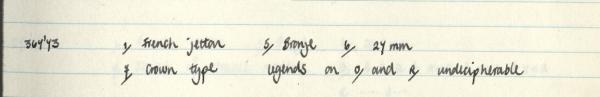 364'43 1/ French jetton 5/ Bronze 6/ 24 mm
7/ Crown type legends on O/ and R/ undecipherable